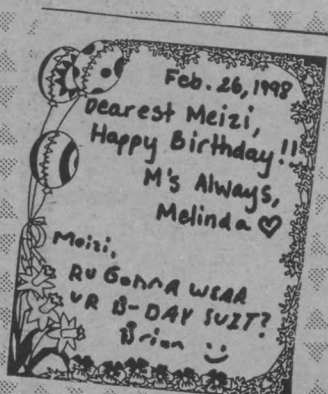 Feb. 26, 1998
Dearest Meizi,
Happy Birthday!!
M's Always,
Melinda ♡
Meizi,
RU GONNA WEAR
UR B-DAY SUIT?
Brian :)